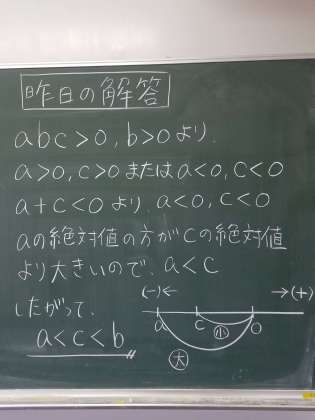 昨日の解答
abc>0, b>0より.
a>0, c>0またはa<0, c<0
a+c<0より. a<0, c<0
aの絶対値の方がcの絶対値
より大きいので、a<c
したがって、
a<c<b
(-)← →(+)
a c 0
小
大